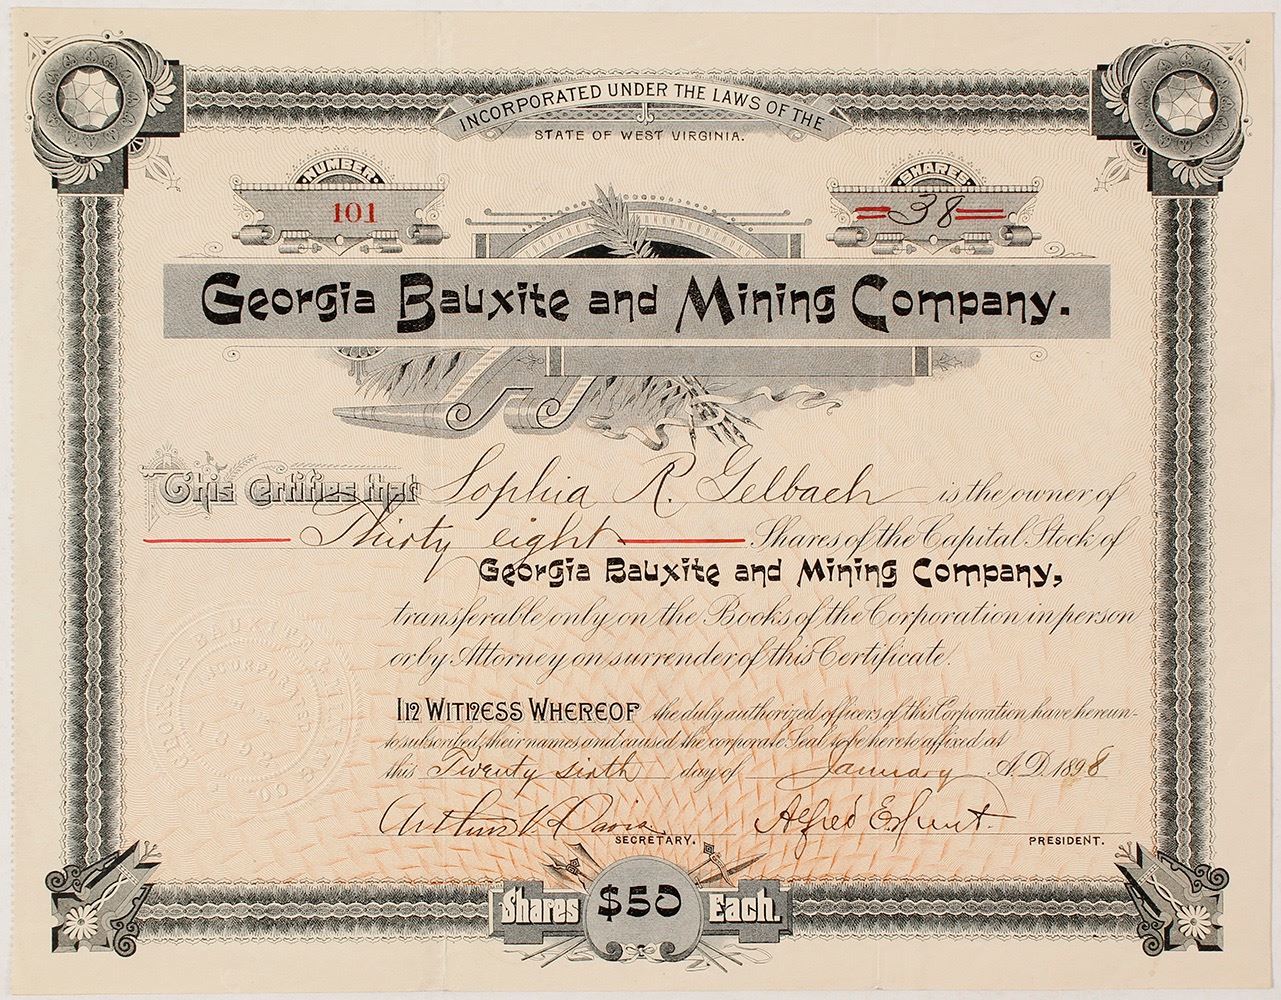 INCORPORATED UNDER THE LAWS OF THE
STATE OF WEST VIRGINIA.
NUMBER
101
SHARES
38
Georgia Bauxite and Mining Company.
This Certifies that Sophia R. Gelbach is the owner of
Thirty eight Shares of the Capital Stock of
Georgia Bauxite and Mining Company,
transferable only on the Books of the Corporation in person
or by Attorney on surrender of this Certificate.
IN WITNESS WHEREOF the duly authorized officers of this Corporation, have hereun-
to subscribed their names and caused the corporate Seal to be hereto affixed at
this Twenty sixth day of January A.D. 1898
Arthur V. Davis
SECRETARY.
Alfred
PRESIDENT.
GEORGIA BAUXITE & MINING CO.
INCORPORATED
Shares $50 Each.